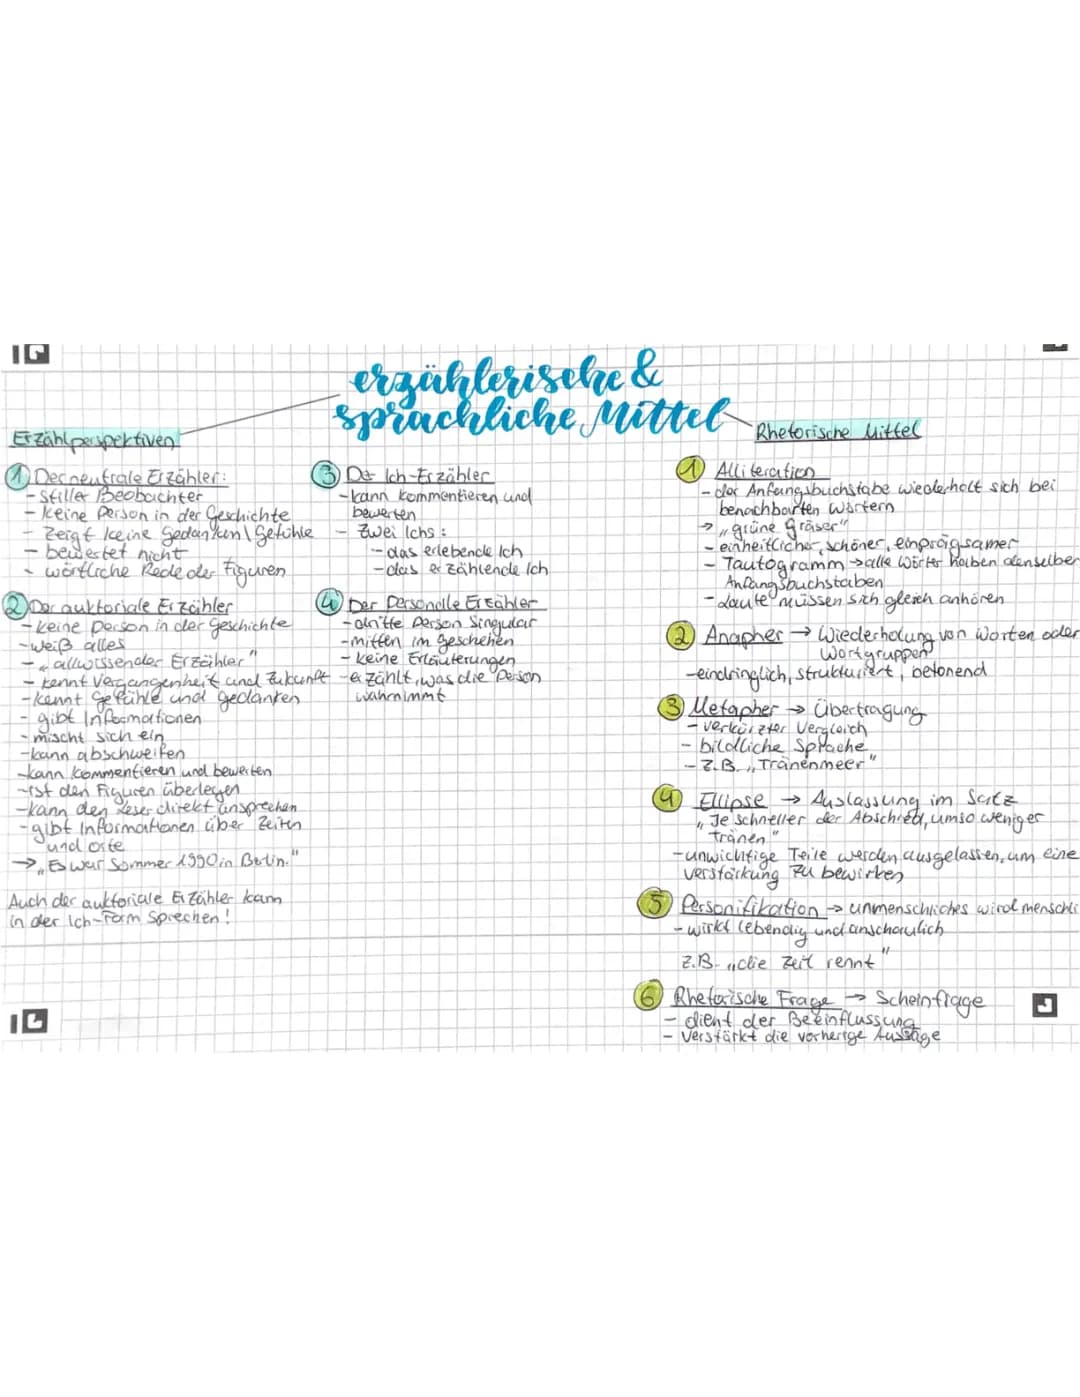 erzählerische &
sprachliche Mittel
Erzählperspektiven
1 Der neutrale Erzähler:
- Stiller Beobachter
- keine Person in der Geschichte
- zeigt keine Gedanken \ Gefühle
- bewertet nicht
- wörtliche Rede der Figuren
2 Der auktoriale Erzähler
- keine Person in der Geschichte
- weiß alles
- „allwissender Erzähler"
- kennt Vergangenheit und Zukunft
- kennt Gefühle und Gedanken
- gibt Informationen
- mischt sich ein
- kann abschweifen
- kann kommentieren und bewerten
- ist den Figuren überlegen
- kann den Leser direkt ansprechen
- gibt Informationen über Zeiten
und Orte
→ „Es war Sommer 1990 in Berlin."
Auch der auktoriale Erzähler kann
in der Ich-Form sprechen!
3 Der Ich-Erzähler
- kann kommentieren und
bewerten
- Zwei Ichs:
- das erlebende Ich
- das erzählende Ich
4 Der Personelle Erzähler
- dritte Person Singular
- mitten im Geschehen
- keine Erläuterungen
- erzählt, was die Person
wahrnimmt
Rhetorische Mittel
1 Alliteration
- der Anfangsbuchstabe wiederholt sich bei
benachbarten Wörtern
→ „grüne Gräser"
- einheitlicher, schöner, einprägsamer
- Tautogramm → alle Wörter haben denselben
Anfangsbuchstaben
- Laute müssen sich gleich anhören
2 Anapher → Wiederholung von Worten oder
Wortgruppen
- eindringlich, strukturiert, betonend
3 Metapher → Übertragung
- verkürzter Vergleich
- bildliche Sprache
- z.B. „Tränenmeer"
4 Ellipse → Auslassung im Satz
„Je schneller der Abschied, umso weniger
Tränen."
- unwichtige Teile werden ausgelassen, um eine
Verstärkung zu bewirken
5 Personifikation → unmenschliches wird menschli
- wirkt lebendig und anschaulich
z.B. „die Zeit rennt"
6 Rhetorische Frage → Scheinfrage
- dient der Beeinflussung
- verstärkt die vorherige Aussage